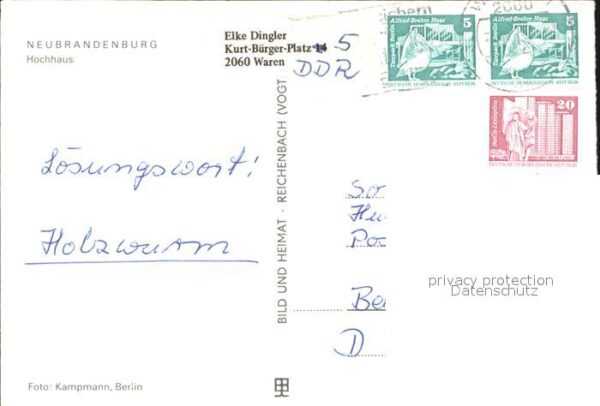 NEUBRANDENBURG
Hochhaus
Elke Dingler
Kurt-Bürger-Platz 14 5
2060 Waren
DDR
ichern
2060
Tierpark Berlin Alfred-Brehm-Haus 5
DEUTSCHE DEMOKRATISCHE REPUBLIK
Tierpark Berlin Alfred-Brehm-Haus 5
DEUTSCHE DEMOKRATISCHE REPUBLIK
Berlin, Leninplatz 20
DEUTSCHE DEMOKRATISCHE REPUBLIK
Lösungswort:
Holzwurm
BILD UND HEIMAT · REICHENBACH (VOGT
So
Po
Be
D
privacy protection
Datenschutz
Foto: Kampmann, Berlin